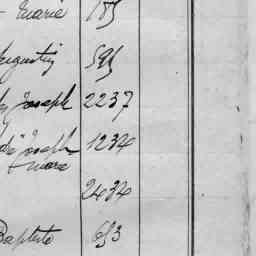 - Marie 185
Augustin 595
Joseph 2237
Joseph 1234
2434
Baptiste 653